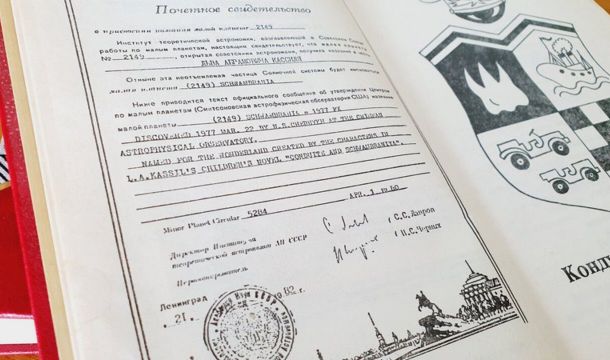 Почетное свидетельство
о присвоении названия малой планете 2149
Институт теоретической астрономии, возглавляющий в Советском Союзе
работы по малым планетам, настоящим свидетельствует, что малая планета
№ 2149, открытая советскими астрономами, получила название в честь
ЛЬВА АБРАМОВИЧА КАССИЛЯ
Отныне эта неотъемлемая частица Солнечной системы будет именоваться
малая планета (2149) SCHWAMBRANIA
Ниже приводится текст официального сообщения об утверждении Центром
по малым планетам (Смитсоновская астрофизическая обсерватория США) названия
малой планеты (2149) SCHWAMBRANIA = 1977 FX
DISCOVERED 1977 MAR. 22 BY N.S.CHERNYKH AT THE CRIMEAN
ASTROPHYSICAL OBSERVATORY.
NAMED FOR THE WONDERLAND CREATED BY THE CHARACTERS IN
L.A.KASSIL'S CHILDREN'S NOVEL "CONDUITE AND SCHWAMBRANIA".
Minor Planet Circular 5284 APR. 1 1980
Директор Института
теоретической астрономии АН СССР С.С. Лавров
Первооткрыватель Н.С. Черных
Ленинград
21 1982 г.
Конд